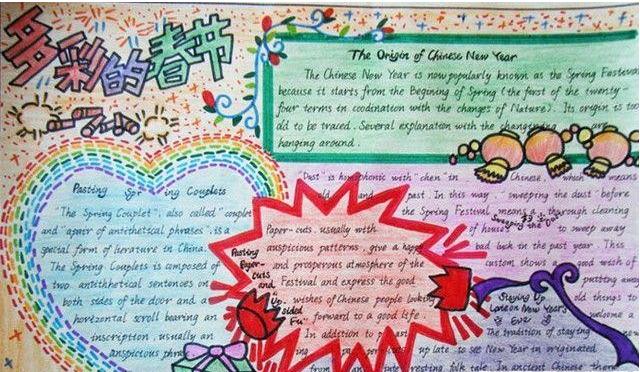 多彩的春节
The Origin of Chinese New Year
The Chinese New Year is now popularly known as the Spring Festival
because it starts from the Begining of Spring (the first of the twenty-
four terms in coodination with the changes of Nature). Its origin is too
old to be traced. Several explanation with the are
hanging around.
Pasting Spr ing Couplets
"The Spring Couplet", also called "couplet
and "a pair of antithetical phrases", is a
special form of literature in China.
The Spring Couplets is composed of
two antithetical sentences on
both sides of the door and a
horizontal scroll bearing an
inscription, usually an
auspicious phrase
Pasting
Paper-
cuts
and
Up
sided
Fu
Paper-cuts, usually with
auspicious patterns, give a happy
and prosperous atmosphere of the
Festival and express the good
wishes of Chinese people looking
forward to a good life.
In addition to
"Dust" is homophonic with "chen" in Chinese, which means
old and past. In this way, "sweeping the dust" before
the Spring Festival means a thorough cleaning
of houses to sweep away
bad luck in the past year. This
custom shows a good wish of
putting away
old things to
welcome a
Sweeping the Dust
Staying Up
Late on New Year's
Eve
The tradition of staying
up late to see New Year in originated
from an interesting folk tale. In ancient Chinese there